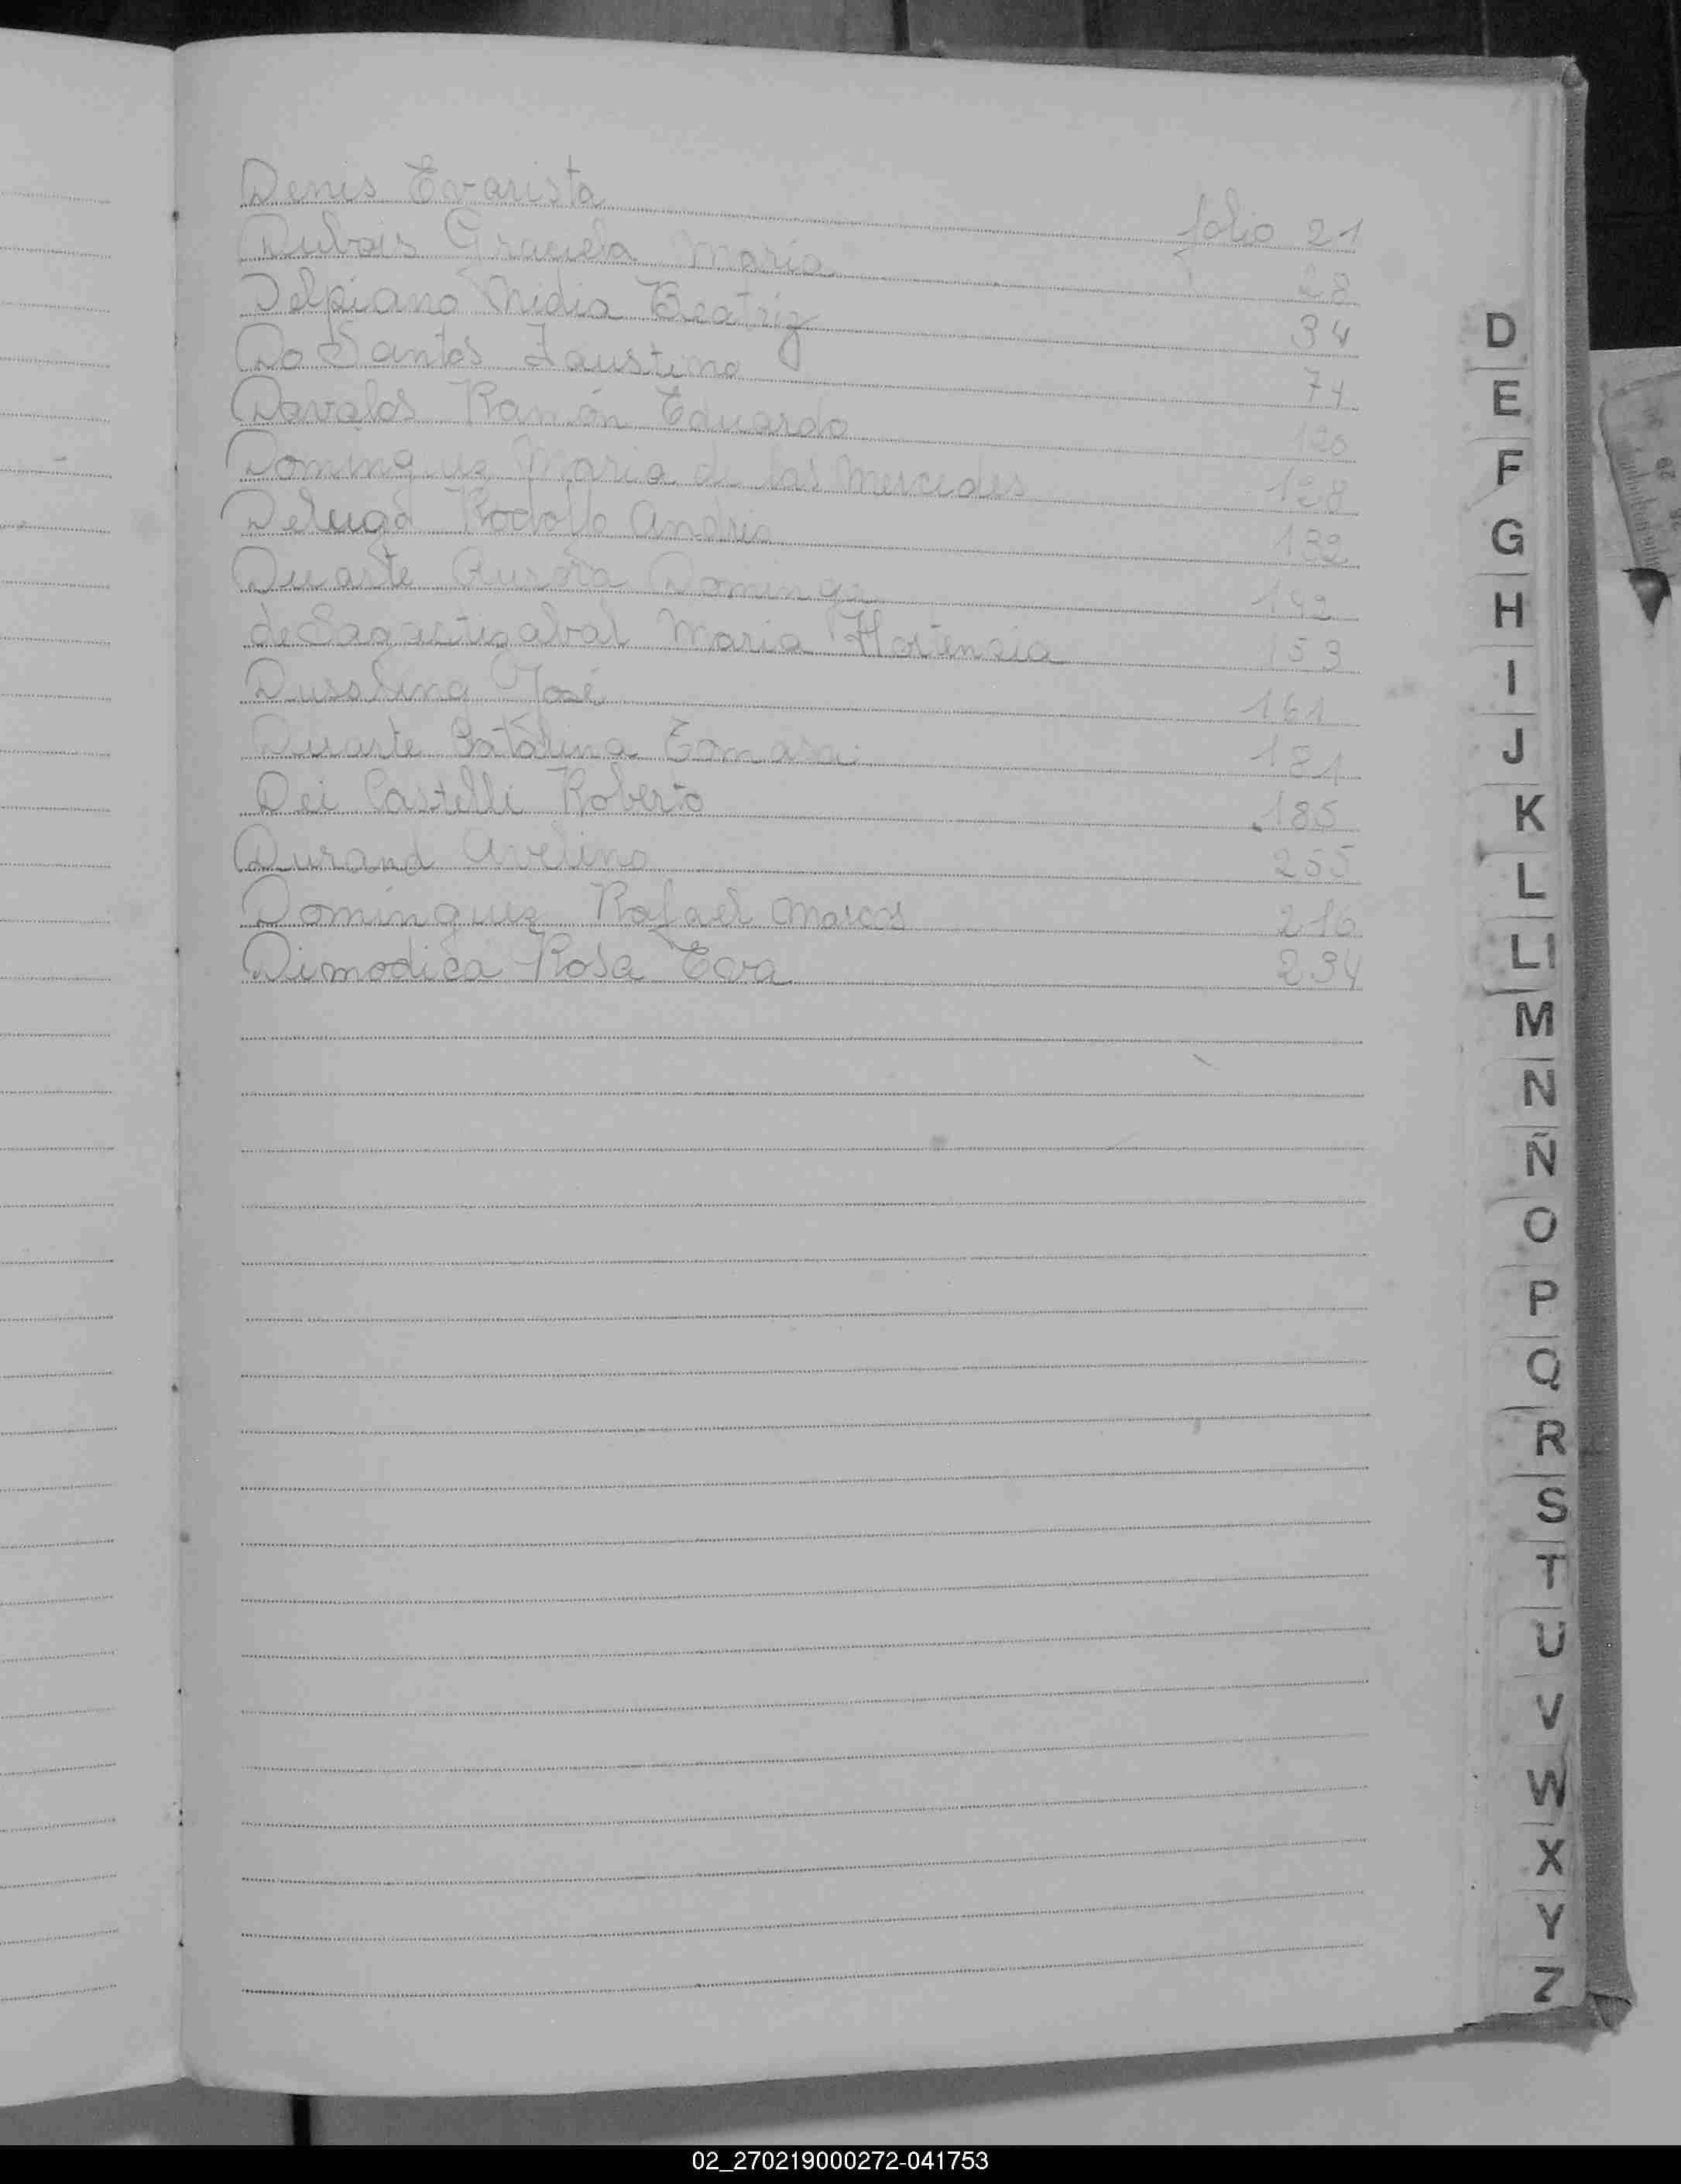 Denis Evarista folio 21
Dubois Graciela Maria 28
Delpiano Nidia Beatriz 34
Do Santos Faustino 74
Davalos Ramón Eduardo 120
Dominguez Maria de las Mercedes 128
Delugo Rodolfo Andres 132
Duarte Aurora Dominga 142
de Sagastizabal Maria Hortensia 153
José 161
Duarte Catalina Tomasa 181
Dei Castelli Roberto 185
Durand Avelino 255
Dominguez Rafael Marcos 216
Dimodica Rosa Eva 234
D
E
F
G
H
I
J
K
L
Ll
M
N
Ñ
O
P
Q
R
S
T
U
V
W
X
Y
Z
02_270219000272-041753